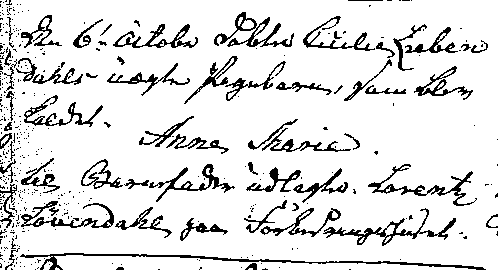 Den 6t. Octobr døbtes Cicilie Lieben
dahls uægte Pigebarn, som blev
kaldet.
Anne Marie.
til Barnefader udlagts. Lorentz
Løvendahl, paa Forbedringshuset.